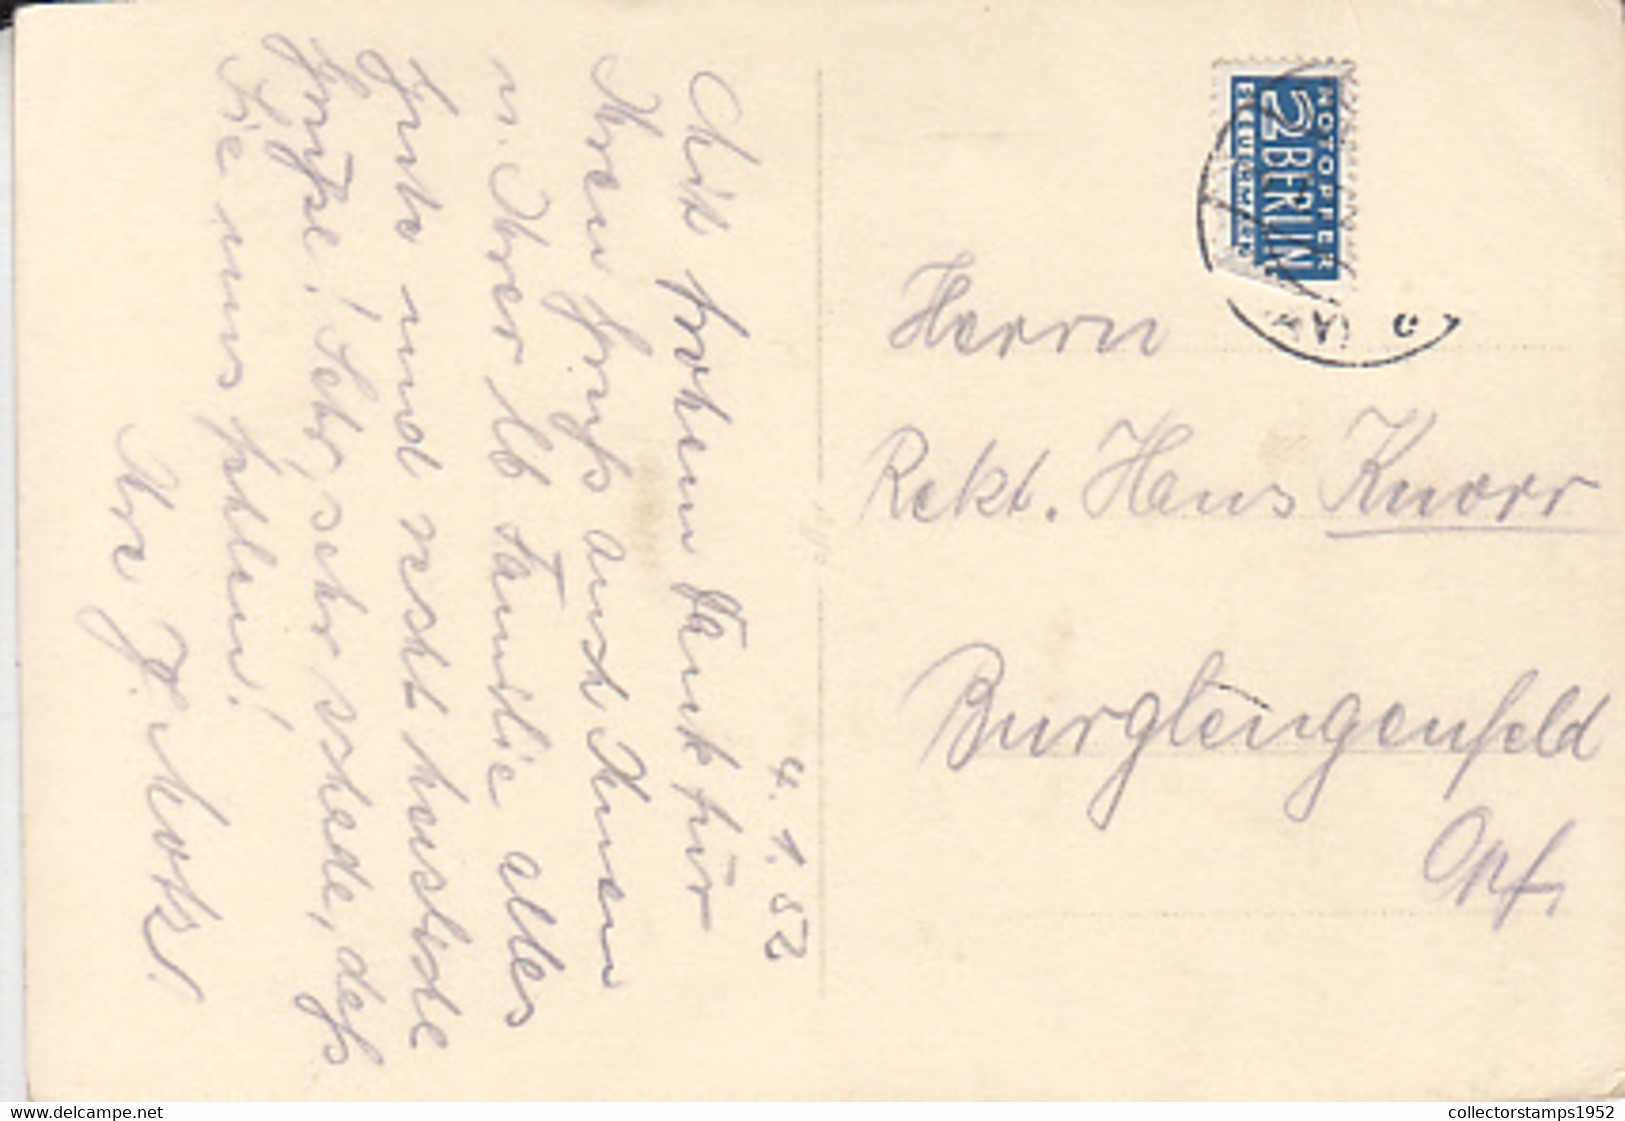 4. 1. 52
Mit frohem Dank für
Ihren Gruß auch Ihnen
u. Ihrer lb Familie alles
Gute und recht herzliche
Grüße! Sehr, sehr schade, daß
Sie uns fehlen!
Ihr J. Motz.
NOTOPFER
2 BERLIN
STEUERMARKE
Herrn
Rekt. Hans Knorr
Burglengenfeld
Opf.
www.delcampe.net
collectorstamps1952